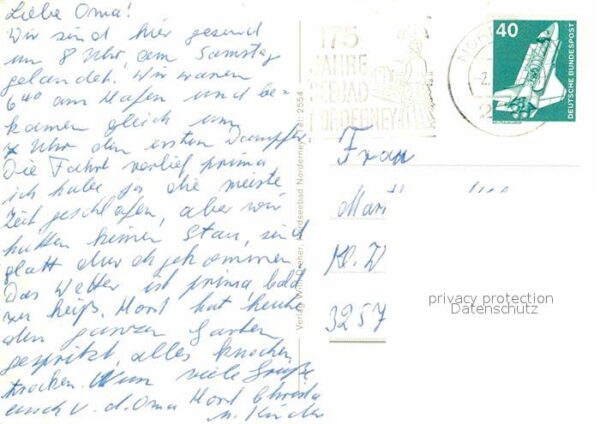 Liebe Oma!
Wir sind hier gesund
um 8 Uhr am Samstag
gelandet. Wir waren
6⁴⁰ am Hafen und be-
kamen gleich um
7 Uhr den ersten Dampfer
Die Fahrt verlief prima
ich habe ja die meiste
Zeit geschlafen, aber wir
hatten keinen Stau, sind
glatt durchgekommen.
Das Wetter ist prima, bald
zu heiß. Horst hat heute
den ganzen Garten
gespritzt, alles knochen
trocken. Nun viele Grüße
euch v. d. Oma Horst Christa
u. Kinder
Verlag Wilh. Dreher, Nordseebad Norderney, Tel. 2554
175
JAHRE
SEEBAD
NORDERNEY
40
DEUTSCHE BUNDESPOST
Frau
3257
privacy protection
Datenschutz